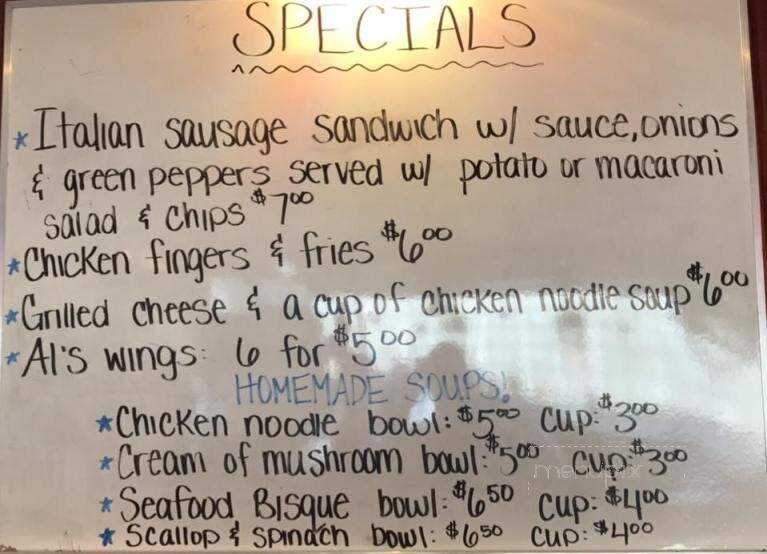 SPECIALS
* Italian sausage sandwich w/ sauce, onions
& green peppers served w/ potato or macaroni
salad & chips $7.00
* Chicken fingers & fries $6.00
* Grilled cheese & a cup of chicken noodle soup $6.00
* Al's wings: 6 for $5.00
HOMEMADE SOUPS!
* Chicken noodle bowl: $5.00 cup: $3.00
* Cream of mushroom bowl: $5.00 cup: $3.00
menupix
* Seafood Bisque bowl: $6.50 cup: $4.00
* Scallop & spinach bowl: $6.50 cup: $4.00